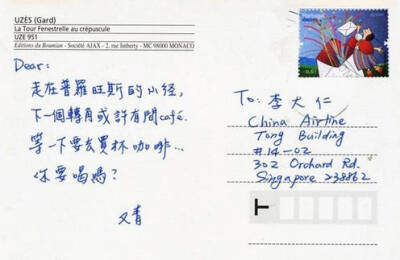 UZÈS (Gard)
La Tour Fenestrelle au crépuscule
UZE 951
Editions du Boumian - Société AJAX - 2, rue Imberty - MC 98000 MONACO
Dear:
走在普羅旺斯的小徑,
下一個轉角或許有間café.
等一下要去買杯咖啡...
你要喝嗎?
文青
To: 李大仁
China Airline
Tong Building
#14-02
302 Orchard Rd.
Singapore 238862